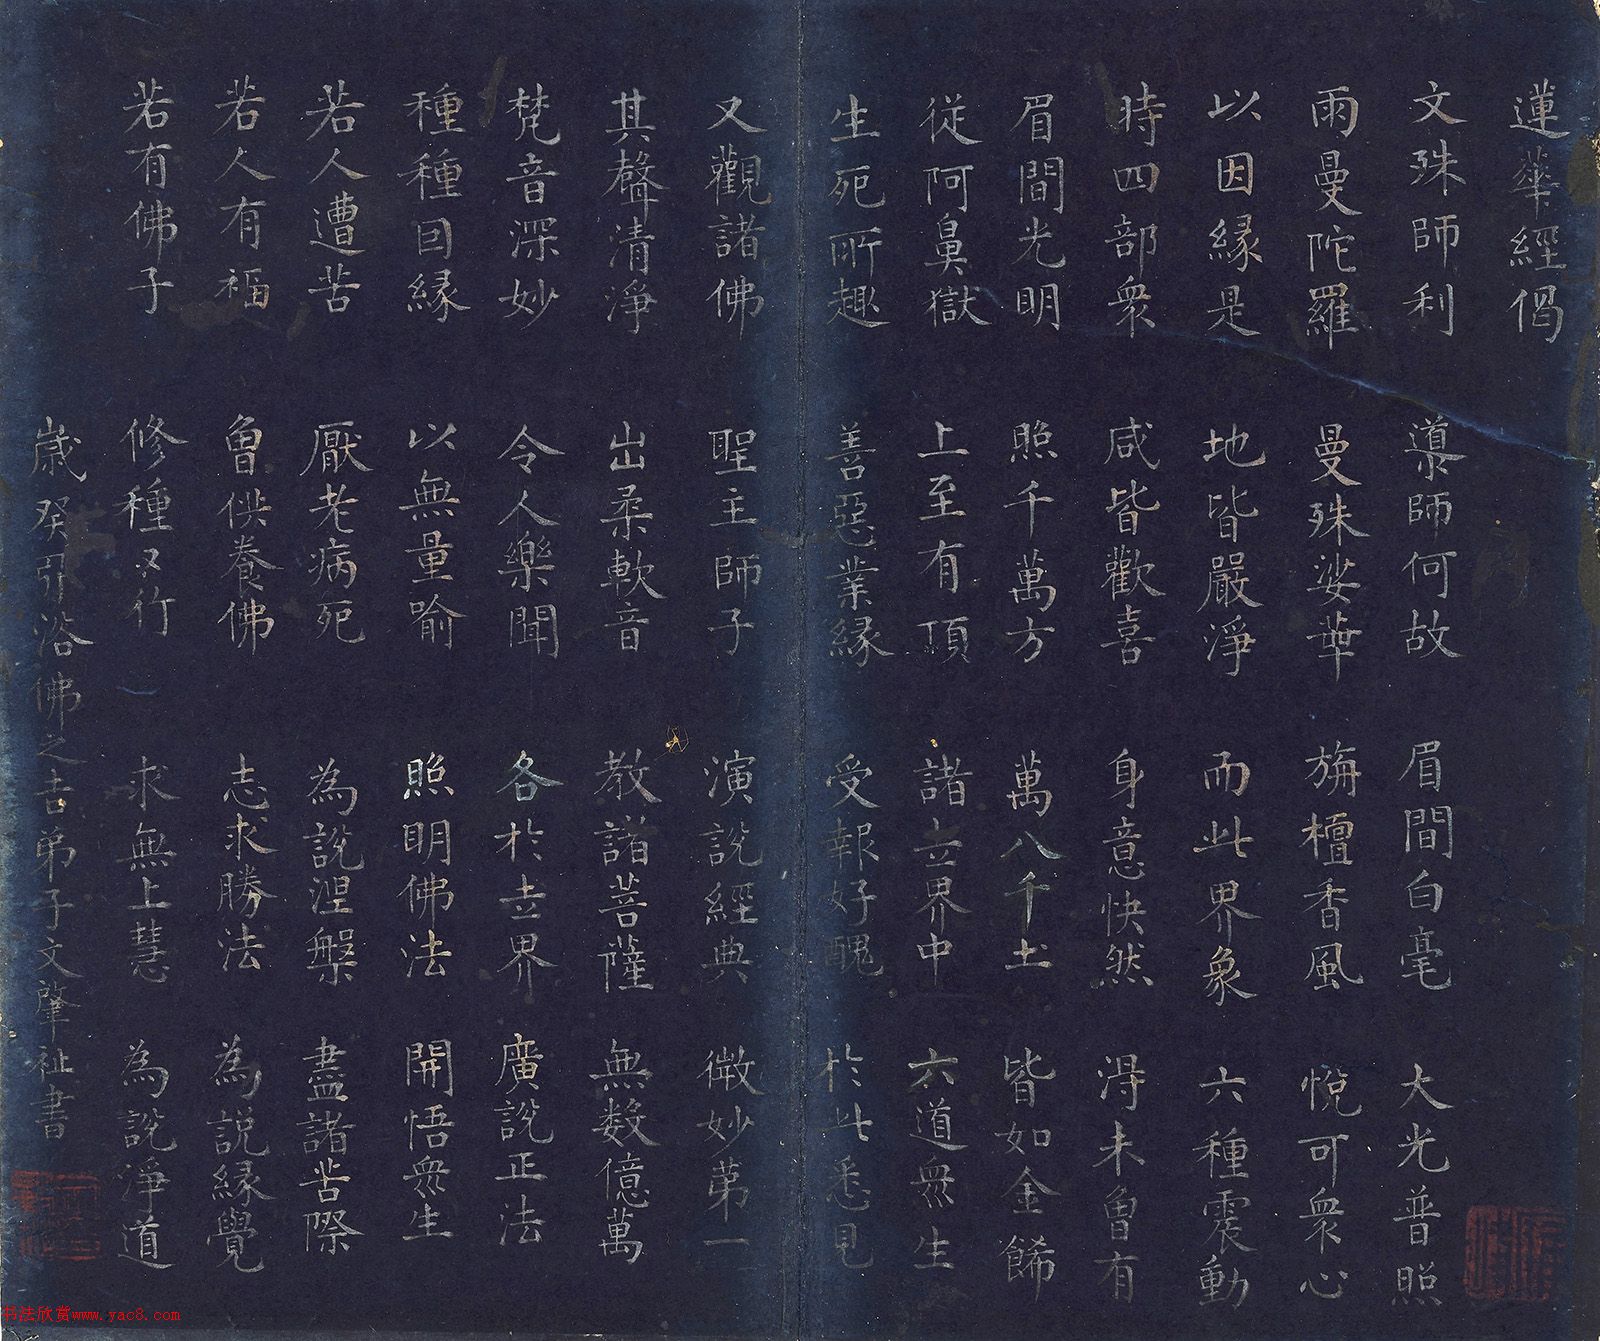 蓮華經偈
文殊師利 導師何故 眉間白毫 大光普照
雨曼陀羅 曼殊娑華 旃檀香風 悅可衆心
以因緣是 地皆嚴淨 而此界象 六種震動
時四部衆 咸皆歡喜 身意快然 淂未曾有
眉間光明 照千萬方 萬八千土 皆如金餙
從阿鼻獄 上至有頂 諸世界中 六道衆生
生死所趣 善惡業緣 受報好醜 於此悉見
又觀諸佛 聖主師子 演說經典 微妙第一
其聲清淨 出柔軟音 教諸菩薩 無數億萬
梵音深妙 令人樂聞 各於世界 廣說正法
種種因緣 以無量喻 照明佛法 開悟衆生
若人遭苦 厭老病死 為說涅槃 盡諸苦際
若人有福 曾供養佛 志求勝法 為說緣覺
若有佛子 修種種行 求無上慧 為說淨道
歲癸 浴佛之吉弟子文肇祉書
书法欣赏www.yac8.com